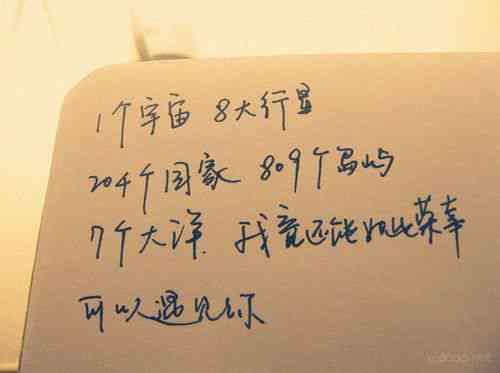 1个宇宙 8大行星
204个国家 809个岛屿
7个大洋. 我竟还能如此荣幸
可以遇见你